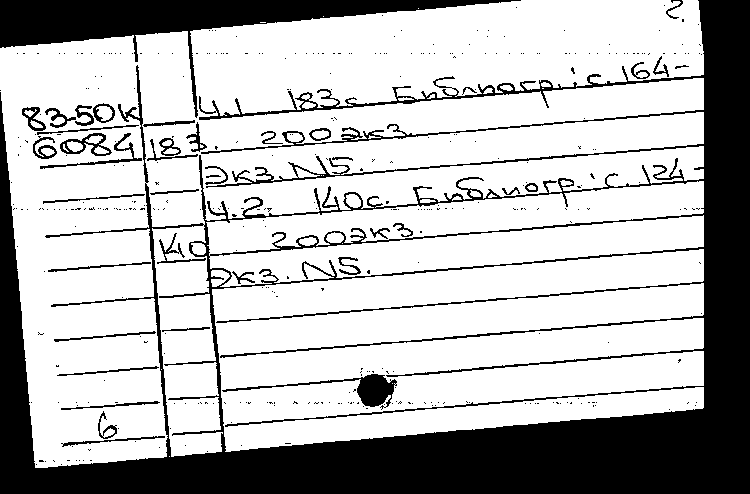 2.
83-50к Ч.1 183с. Библиогр.: с. 164-
6084 183. 200 экз.
Экз. N5.
Ч.2. 140с. Библиогр.: с. 124-
140 200 экз.
Экз. N5.
6